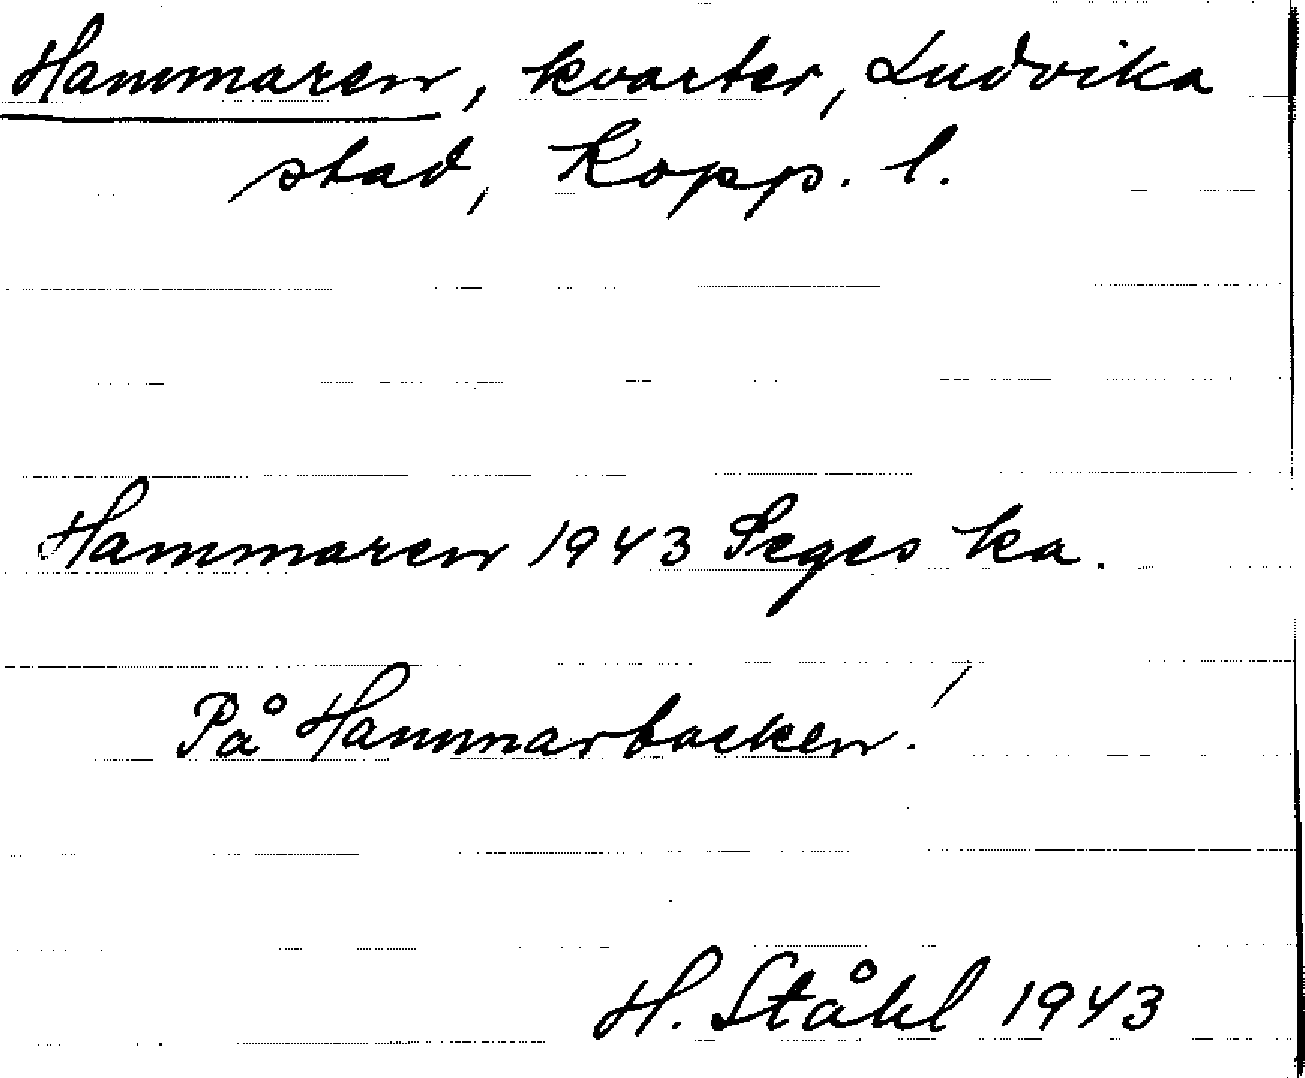 Hammaren, kvarter, Ludvika
stad, Kopp. l.
Hammaren 1943 Seges ka.
På Hammarbacken!
H. Ståhl 1943